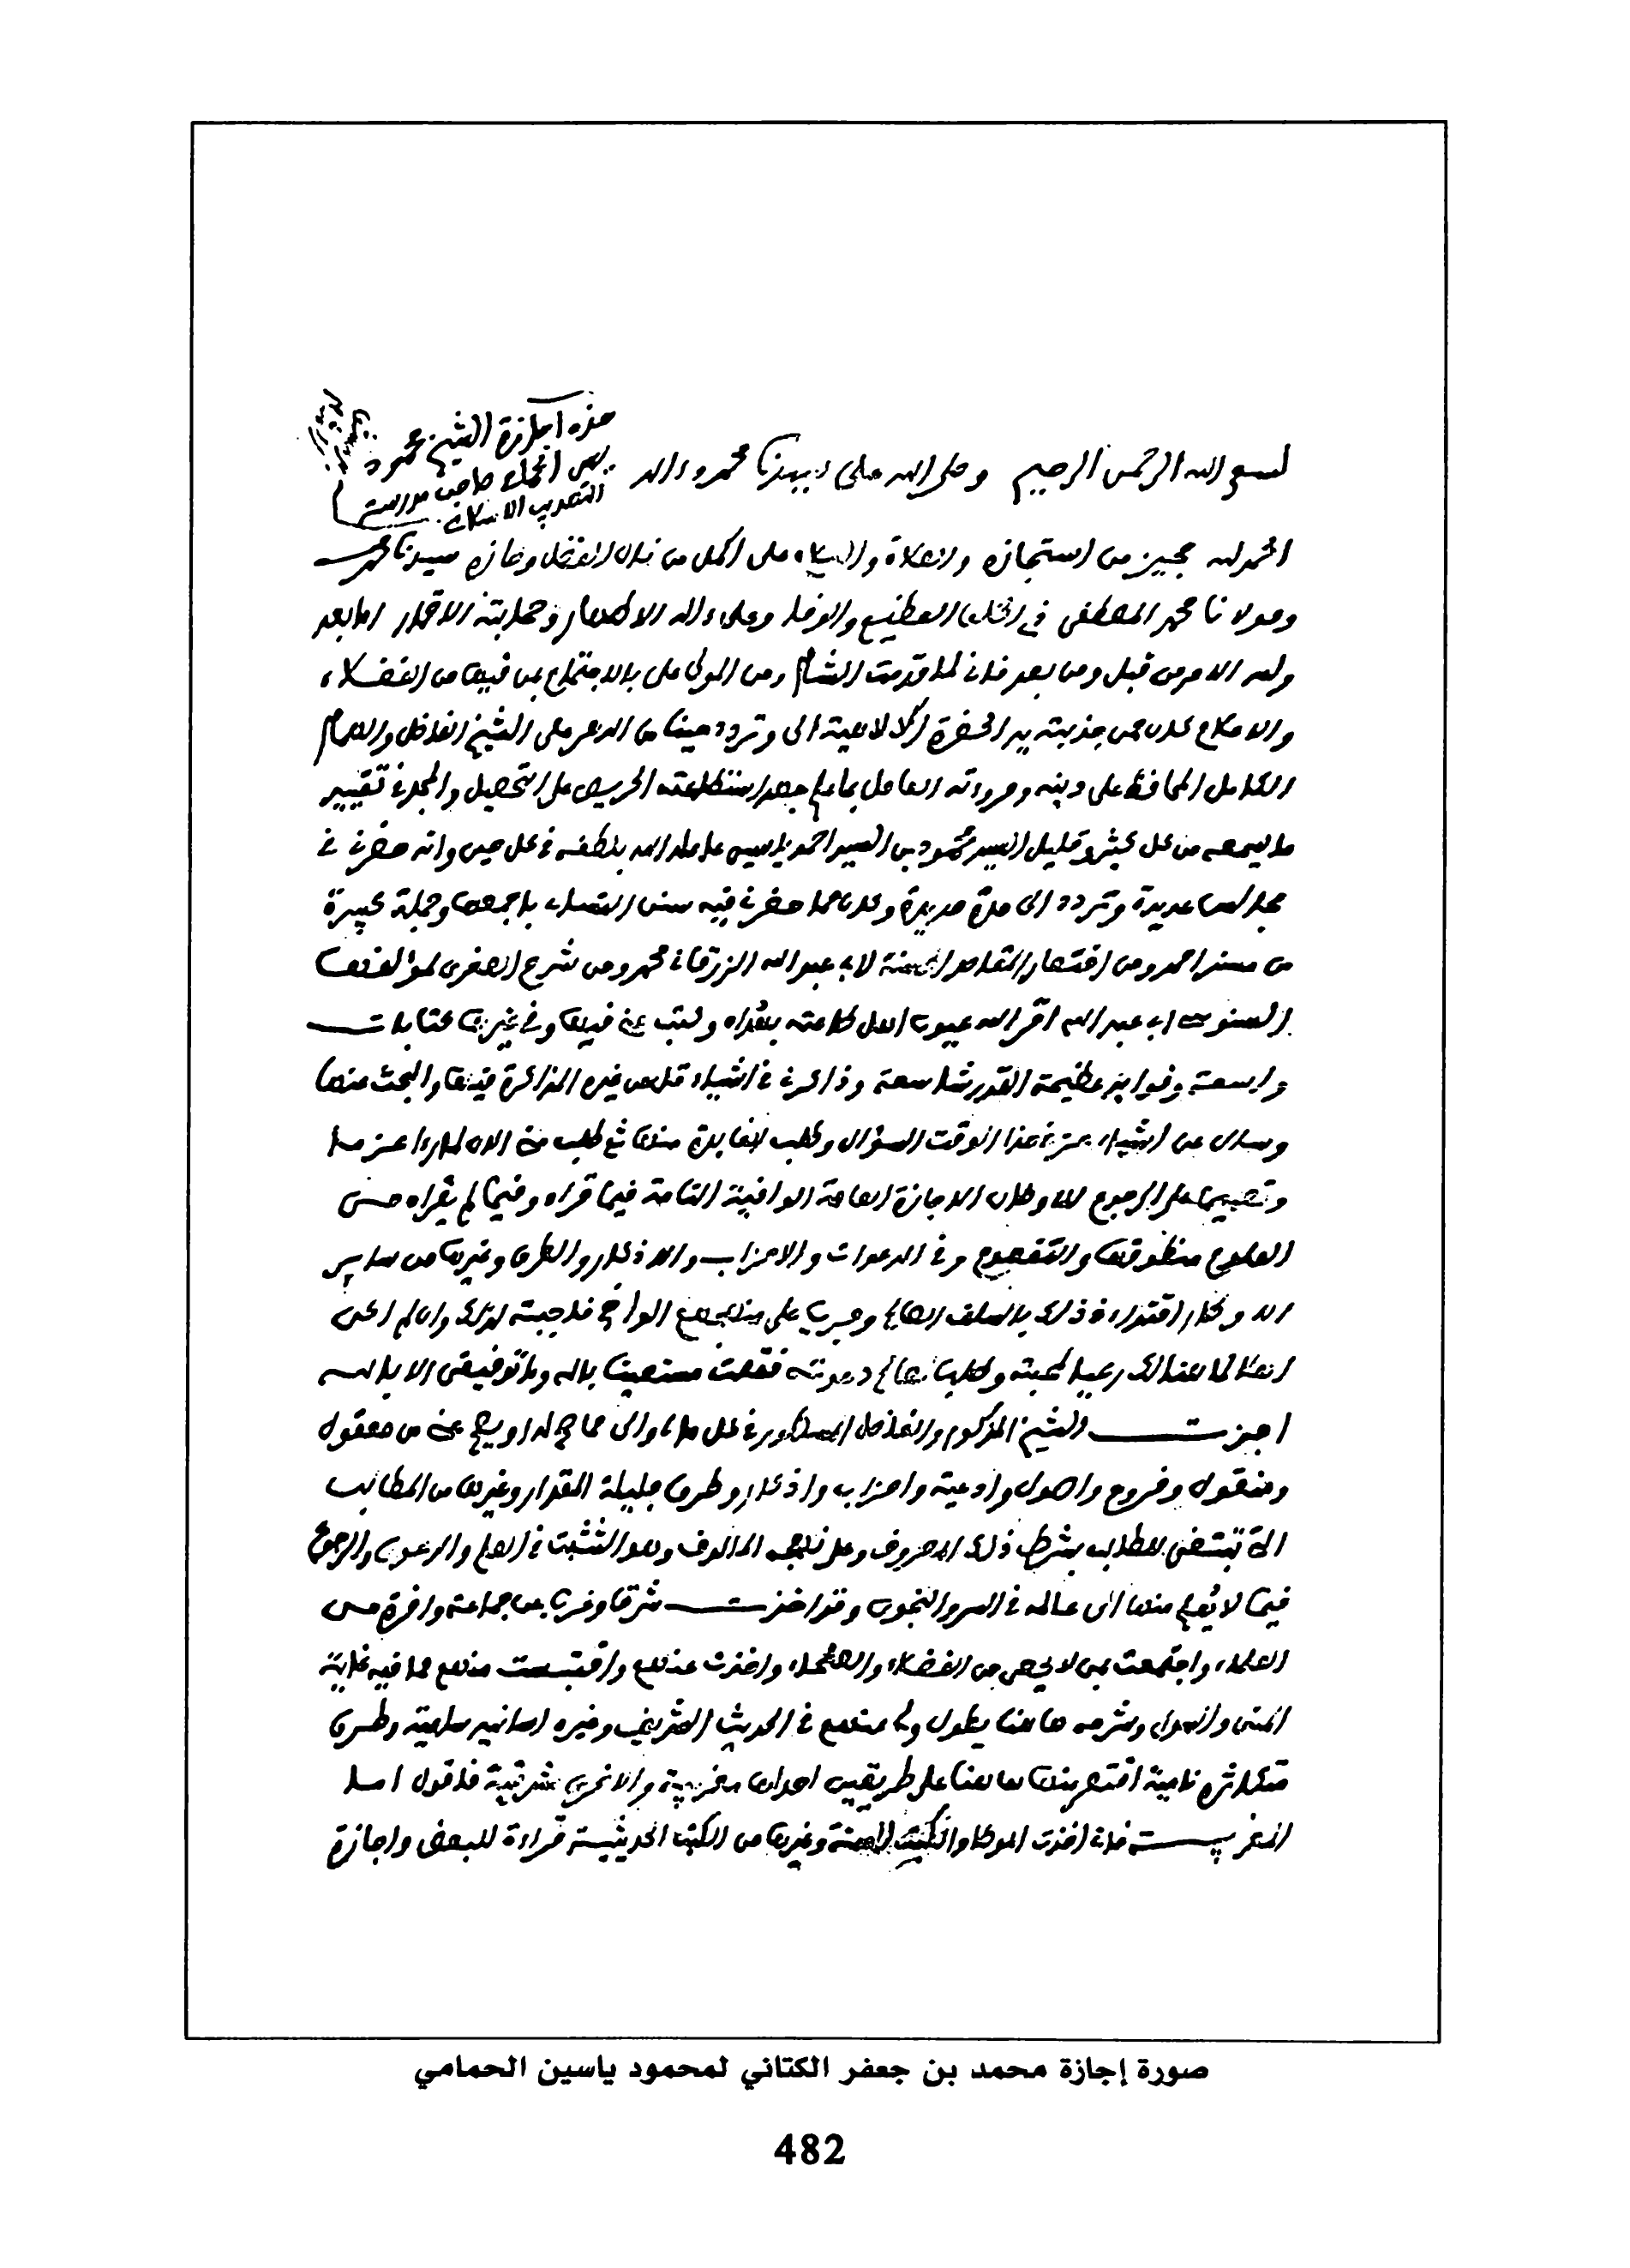 بسم الله الرحمن الرحيم وصلى الله على سيدنا محمد وءاله
هذه اجازة الشيخ محمود
يس الحمامي صاحب مدرسة
التهذيب الاسلامي
الحمد لله مجيز من استجازه والصلاة والسلام على اكمل من نال الفضل وحازه سيدنا محمد
ومولانا محمد المصطفى في الخلق العظيم والوفا وعلى ءاله الاطهار وصحابته الاخيار اما بعد
ولله الامر من قبل ومن بعد فاني لما قدمت الشام ومن المولى علي بالاجتماع بمن فيها من الفضلاء
والاعلام كان ممن جذبته يد الحضرة الالاهية الي وتردد حينا من الدهر علي الشيخ الفاضل والهمام
الكامل المحافظ على دينه ومروءته العامل بما علم جهد استطاعته الحريص على التحصيل والمجد في تقييد
ما يسمعه من كل كثير وقليل السيد محمود بن السيد احمد ياسين عامله الله بلطفه في كل حين وانه حضرني في
مجالس عديدة وتردد الي مدة مديدة وكان مما حضرني فيه سنن النساء باجمعها وجملة كبيرة
من مسند احمد ومن اختصار المقاصد الحسنة لابي عبد الله الزرقاني محمد ومن شرح الصغرى لمؤلفها
السنوسي ابي عبد الله اقر الله عيون اهل طاعته بلقراه وكتب عني فيها وفي غيرها كتابات
واسعة وفوايد عظيمة القدر شاسعة وذاكرني في اشياء قل من غيره المذاكرة فيها والبحث عنها
وسال عن اشياء عز في هذا الوقت السؤال وطلب الفايدة منها ثم طلب مني الان لما را عزما
وتصميما على الرجوع للاوطان الاجازة العامة الوافية التامة فيما قراه وفيما لم يقراه من
العلوم منطوقها والمفهوم وفي الدعوات والاحزاب والاذكار والطرق وغيرها من ساير
الاوطار اقتداء في ذلك بالسلف الصالح وجريا على منهجهم الواضح فاجبته لذلك وان لم اكن
اهلا لما هنالك رعيا لمحبته وطلبا لصالح دعوته فقلت مستعينا بالله وما توفيقي الا بالله
اجزت الشيخ المذكور والفاضل المسطور في كل ما لي وال مما صح لدي او يصح عني من معقول
ومنقول وفروع واصول وادعية واحزاب واذكار وطرق جليلة المقدار وغيرها من المطالب
التي تبتغى للطالب بشرط ذلك المعروف وعلى نهجه المالوف وهو التثبت في العلم والرجوع
فيما لا يعلم منها الى عالمه في السر والنجوى وقد اخذت شرقا وغربا عن جماعة وافرة من
العلماء واجتمعت بمن لا يحصى من الفضلاء والصلحاء واخذت عنهم واقتبست منهم مما فيه غاية
المنى والسول وشرحه هاهنا يطول ولي عنهم في الحديث الشريف وغيره اسانيد سامية وطرق
متكاثرة نامية اقتصر منها هاهنا على طريقين احداهما مغربية والاخرى شرقية فاقول اما
المغربية فاني اخذت الموطا والكتب الستة وغيرها من الكتب الحديثية قراءة للبعض واجازة
صورة إجازة محمد بن جعفر الكتاني لمحمود ياسين الحمامي
482